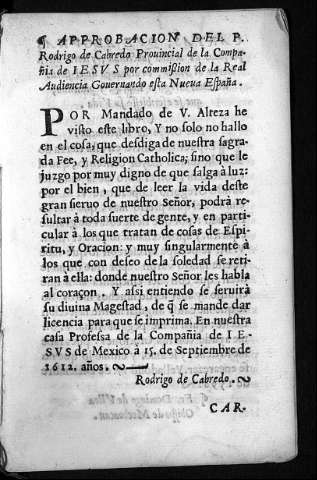 ¶ APPROBACION DEL P.
Rodrigo de Cabredo Provincial de la Compa-
ñia de IESVS por commißion de la Real
Audiencia Governando esta Nueva España.
POR Mandado de V. Alteza he
visto este libro, Y no solo no hallo
en el cosa, que desdiga de nuestra sagra-
da Fee, y Religion Catholica; sino que le
juzgo por muy digno de que salga à luz:
por el bien, que de leer la vida deste
gran sieruo de nuestro Señor, podrà re-
sultar à toda suerte de gente, y en parti-
cular à los que tratan de cosas de Espi-
ritu, y Oracion: y muy singularmente à
los que con deseo de la soledad se reti-
ran à ella: donde nuestro Señor les habla
al coraçon. Y assi entiendo se seruirà
su diuina Magestad, de q̃ se mande dar
licencia para que se imprima. En nuestra
casa Professa de la Compañia de IE-
SVS de Mexico à 15. de Septiembre de
1612. años.
Rodrigo de Cabredo.
CAR.